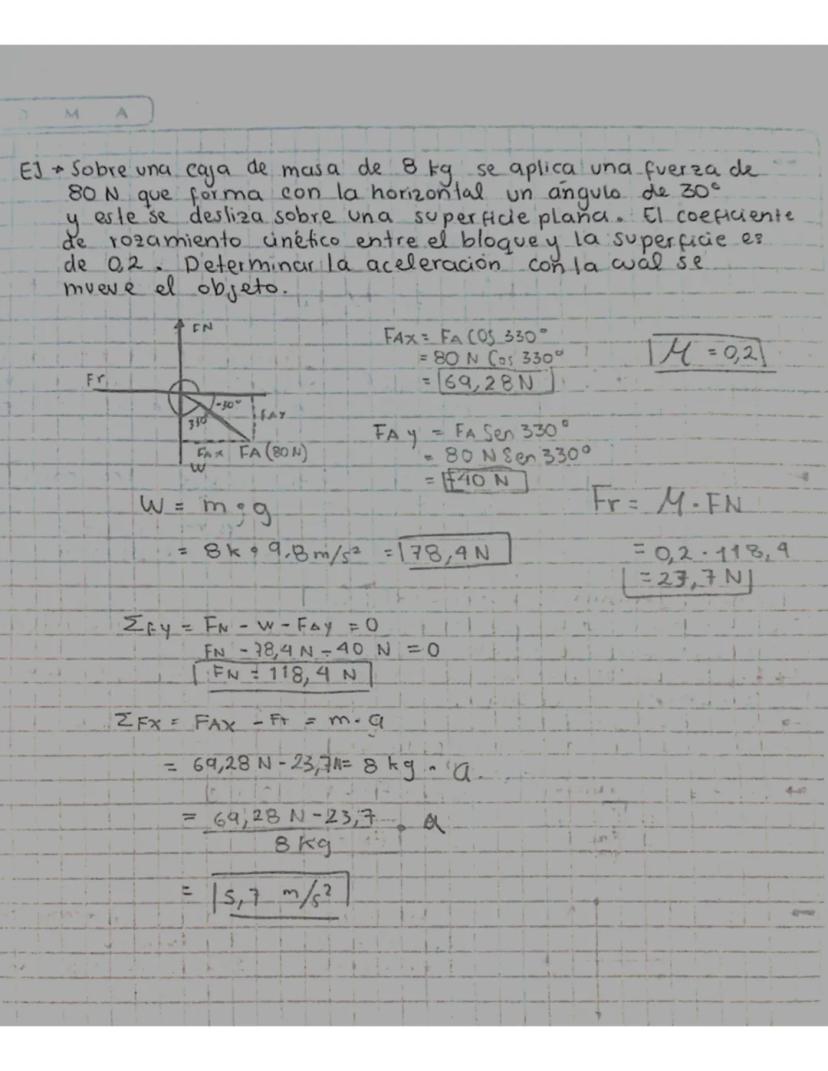 D M A
EJ → Sobre una caja de masa de 8 kg se aplica una fuerza de
80 N que forma con la horizontal un ángulo de 30°
y este se desliza sobre una superficie plana. El coeficiente
de rozamiento cinético entre el bloque y la superficie es
de 0,2. Determinar la aceleración con la cual se
mueve el objeto.
FN
Fr
-30°
330
FAY
FAX FA (80N)
W
FAX = FA COS 330°
= 80 N Cos 330°
= 69,28 N
M = 0,2
FAy = FA Sen 330°
= 80 N Sen 330°
= 40 N
W = m · g
= 8k · 9.8 m/s² = 78,4 N
Fr = M · FN
= 0,2 · 118,4
= 23,7 N
ΣFY = FN - W - FAY = 0
FN - 78,4 N - 40 N = 0
FN = 118,4 N
ΣFX = FAX - Fr = m · a
= 69,28 N - 23,7N = 8 kg · a.
= 69,28 N - 23,7 · a
8 kg
= 5,7 m/s²